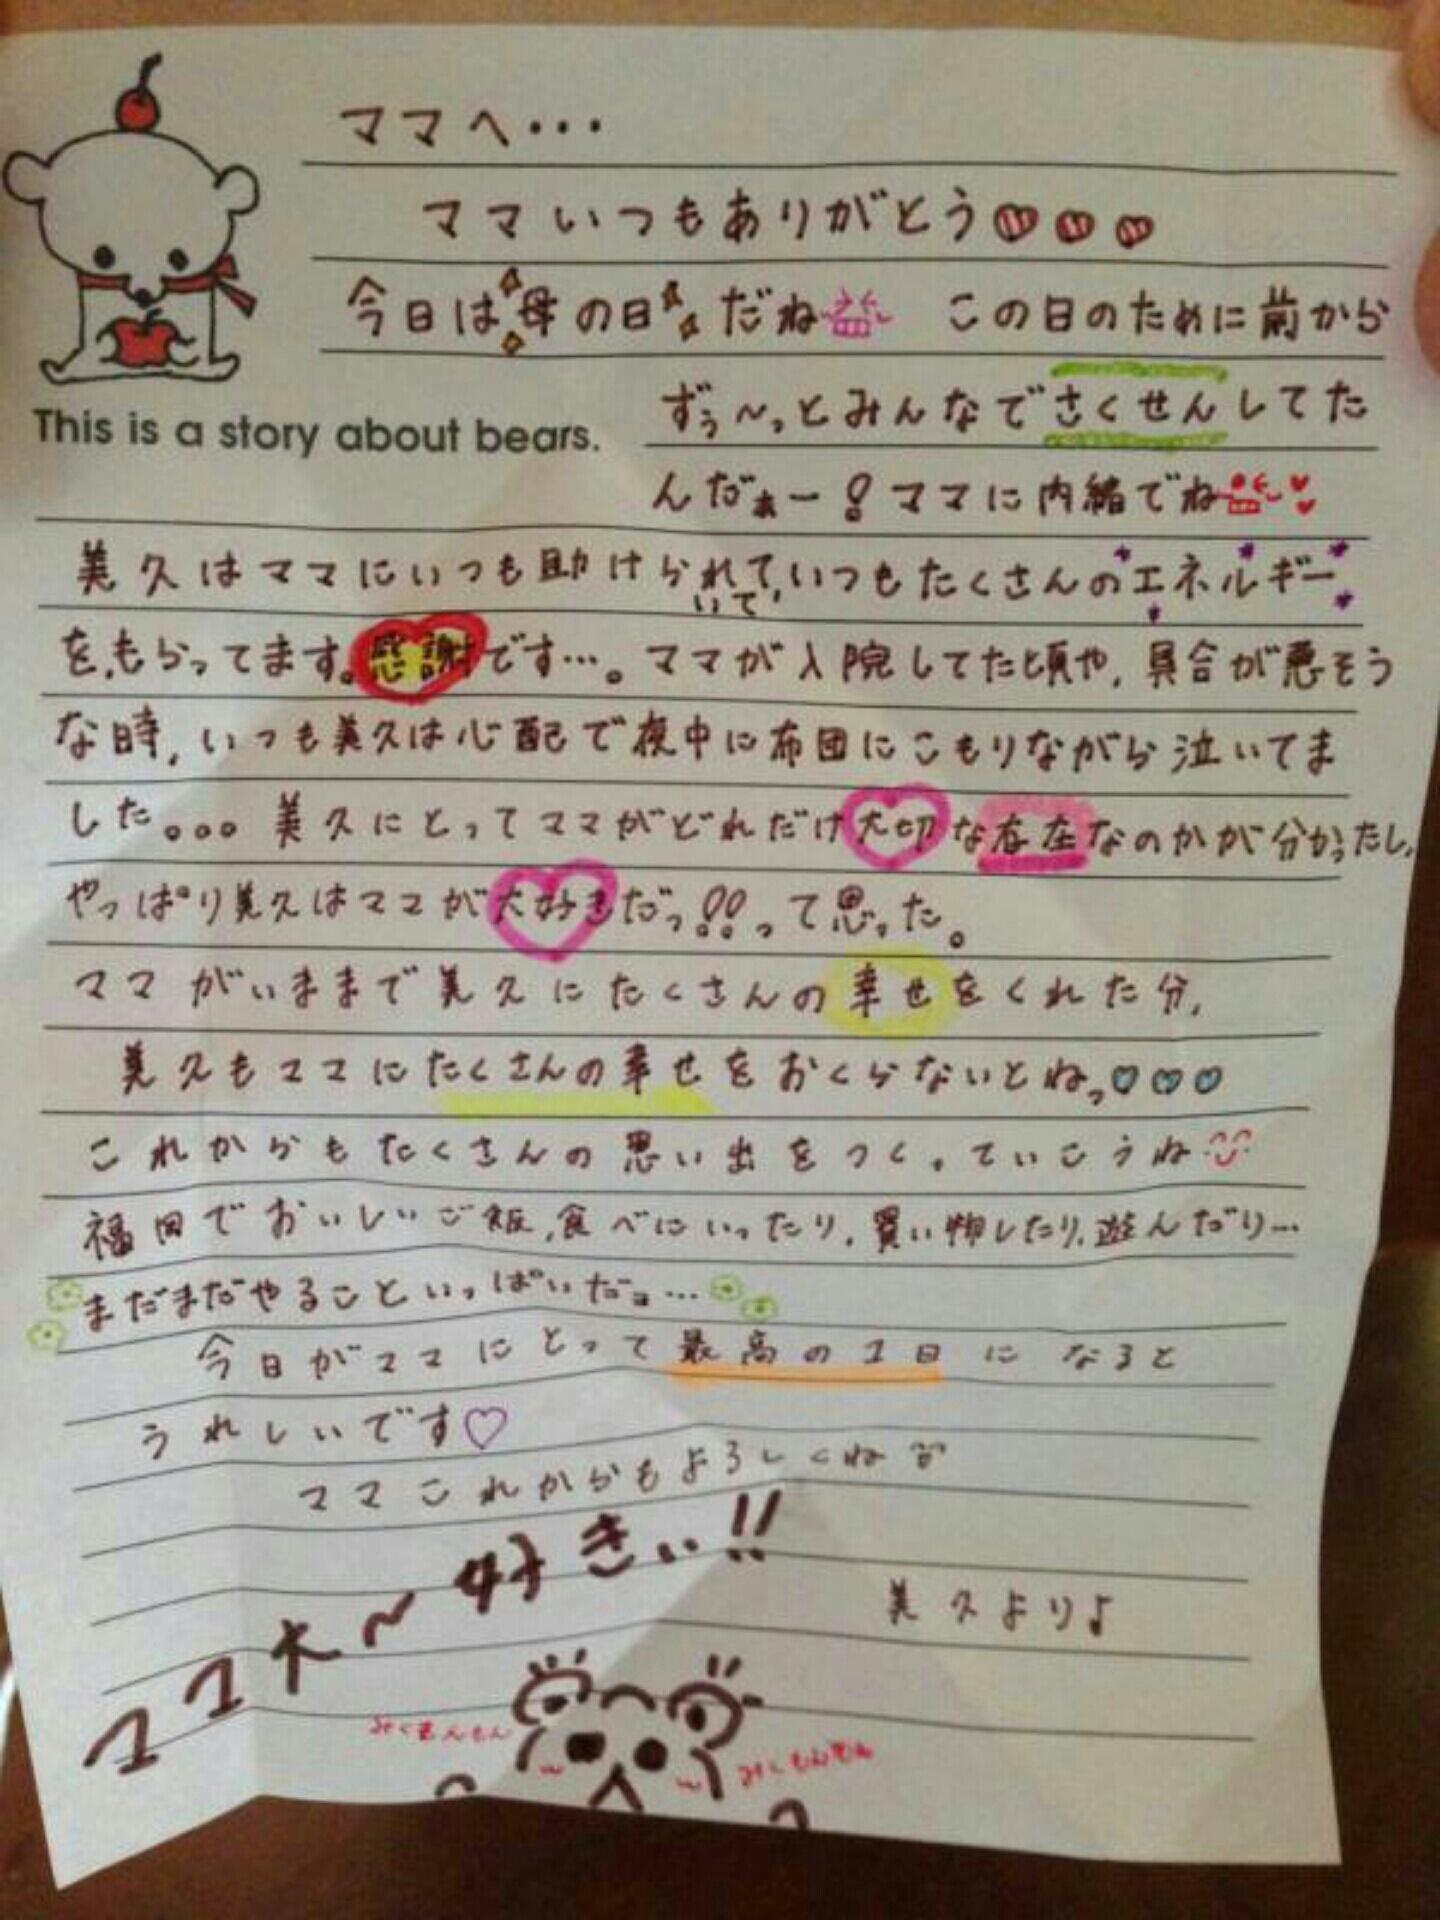 ママへ・・・
ママいつもありがとう♡♡♡
今日は母の日だね この日のために前から
ずぅ〜っとみんなでさくせんしてた
This is a story about bears.
んだぁー!ママに内緒でね
美久はママにいつも助けられて、いつもたくさんのエネルギー
いて
を、もらってます。感謝です…。ママが入院してた頃や、具合が悪そう
な時、いつも美久は心配で夜中に布団にこもりながら泣いてま
した。。。美久にとってママがどれだけ大切な存在なのかが分かったし、
やっぱり美久はママが大好きだっ!!って思った。
ママがいままで美久にたくさんの幸せをくれた分、
美久もママにたくさんの幸せをおくらないとねっ♡♡♡
これからもたくさんの思い出をつくっていこうね
福岡でおいしいご飯、食べにいったり、買い物したり、遊んだり…
まだまだやることいっぱいだョ…
今日がママにとって最高の1日になると
うれしいです♡
ママこれからもよろしくね
ママ大〜好きぃ!!
美久より♪
みくもんもん
みくもんもん